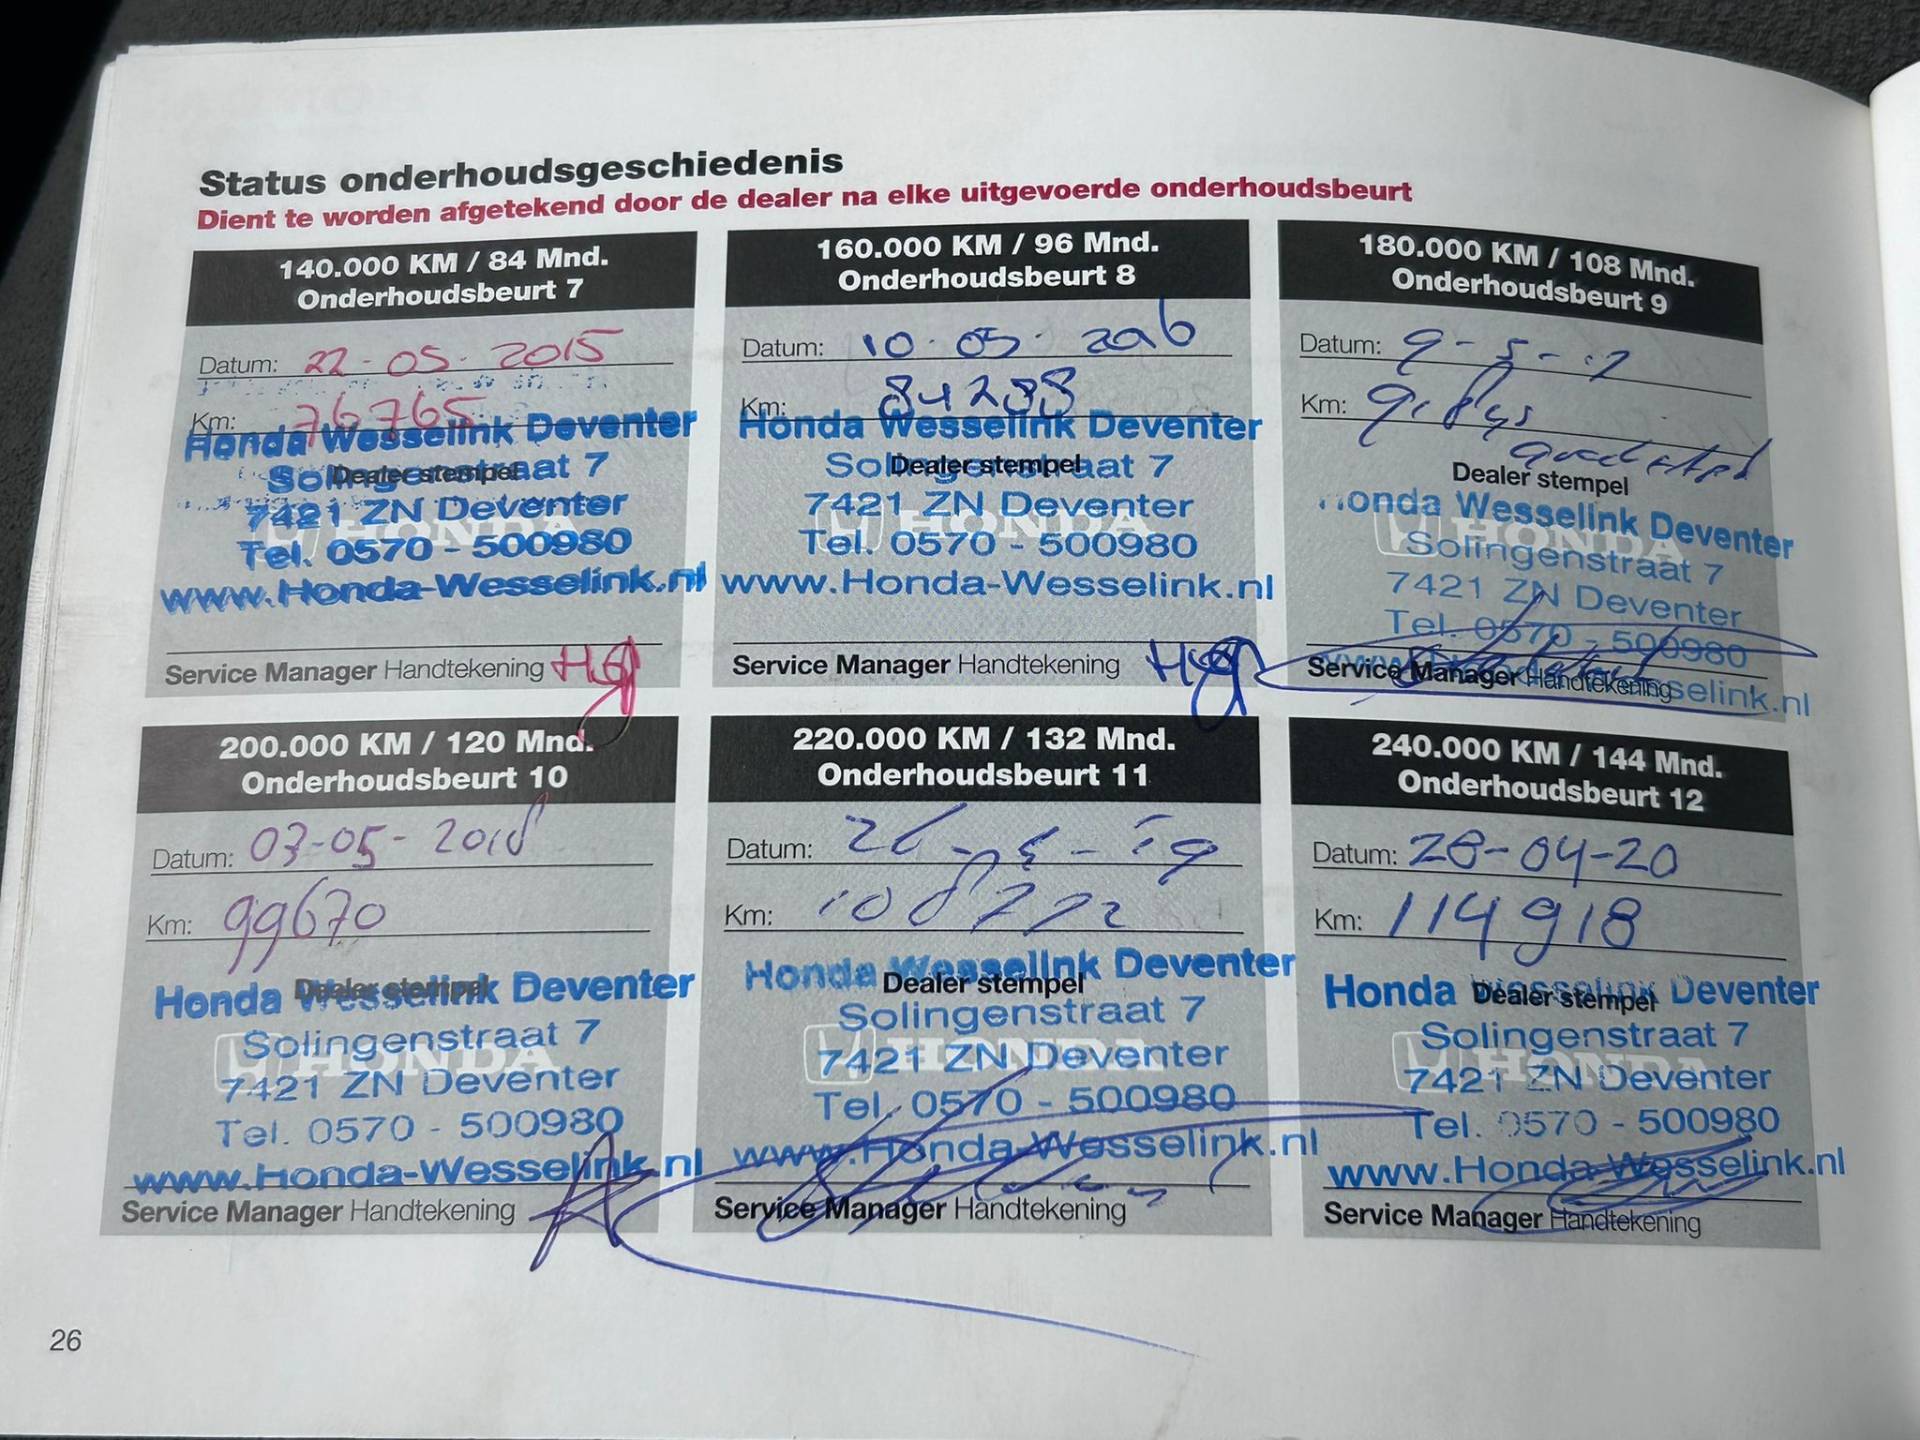 Status onderhoudsgeschiedenis
Dient te worden afgetekend door de dealer na elke uitgevoerde onderhoudsbeurt
140.000 KM / 84 Mnd.
Onderhoudsbeurt 7
Datum: 22-05-2015
Km: 76765
Honda Wesselink Deventer
Dealer stempel
Solingenstraat 7
7421 ZN Deventer
HONDA
Tel. 0570 - 500980
www.Honda-Wesselink.nl
Service Manager Handtekening
160.000 KM / 96 Mnd.
Onderhoudsbeurt 8
Datum: 10-05-2016
Km: 84288
Honda Wesselink Deventer
Dealer stempel
Solingenstraat 7
7421 ZN Deventer
HONDA
Tel. 0570 - 500980
www.Honda-Wesselink.nl
Service Manager Handtekening
180.000 KM / 108 Mnd.
Onderhoudsbeurt 9
Datum: 9-5-17
Km:
Dealer stempel
Honda Wesselink Deventer
HONDA
Solingenstraat 7
7421 ZN Deventer
Tel. 0570 - 500980
www.Honda-Wesselink.nl
Service Manager Handtekening
200.000 KM / 120 Mnd.
Onderhoudsbeurt 10
Datum: 03-05-2018
Km: 99670
Dealer stempel
Honda Wesselink Deventer
Solingenstraat 7
HONDA
7421 ZN Deventer
Tel. 0570 - 500980
www.Honda-Wesselink.nl
Service Manager Handtekening
220.000 KM / 132 Mnd.
Onderhoudsbeurt 11
Datum:
Km: 108772
Honda Wesselink Deventer
Dealer stempel
Solingenstraat 7
7421 ZN Deventer
HONDA
Tel. 0570 - 500980
www.Honda-Wesselink.nl
Service Manager Handtekening
240.000 KM / 144 Mnd.
Onderhoudsbeurt 12
Datum: 28-04-20
Km: 114918
Honda Wesselink Deventer
Dealer stempel
Solingenstraat 7
HONDA
7421 ZN Deventer
Tel. 0570 - 500980
www.Honda-Wesselink.nl
Service Manager Handtekening
26